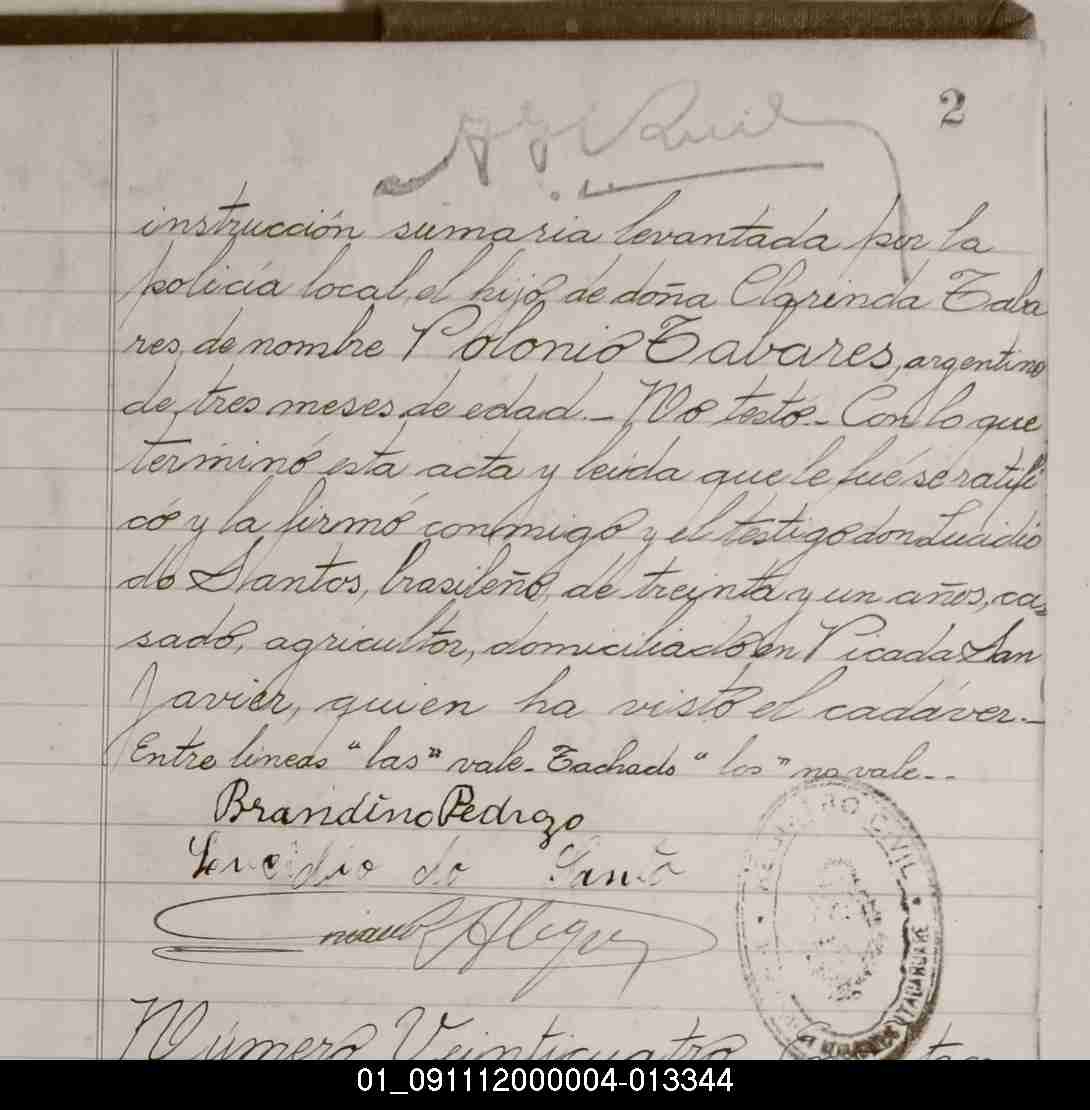 2
instrucción sumaria levantada por la
policía local, el hijo de doña Clarinda Taba
res, de nombre Polonio Tabares, argentino
de tres meses de edad.- No testó.- Con lo que
terminó esta acta y leida que le fué se ratifi
có y la firmó conmigo y el testigo don Lucidio
do Santos, brasileño, de treinta y un años, ca
sado, agricultor, domiciliado en Picada San
Javier, quien ha visto el cadáver.-
Entre lineas "las" vale.- Tachado "los" no vale.--
Brandino Pedrozo
Lucidio do Santo
Alegre
REGISTRO CIVIL
Número Veinticuatro
01_091112000004-013344